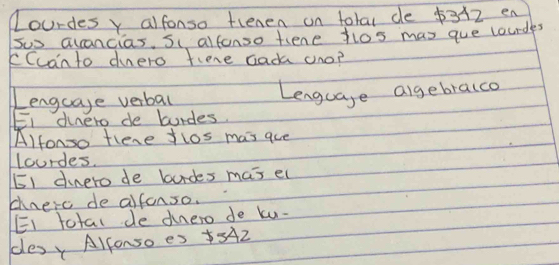 Lourdes y alfonso tienen un total de $342 en
sus arancias. Si alfonso tiene $105 mas que lourdes
¿Cuánto dinero tiene cada uno?
Lenguaje verbal Lenguaje algebraico
El dinero de lurdes.
Alfonso tiene $105 más que
lourdes.
El dinero de lourdes más el
dinero de alfonso.
El total de dinero de lu-
des y Alfonso es $342